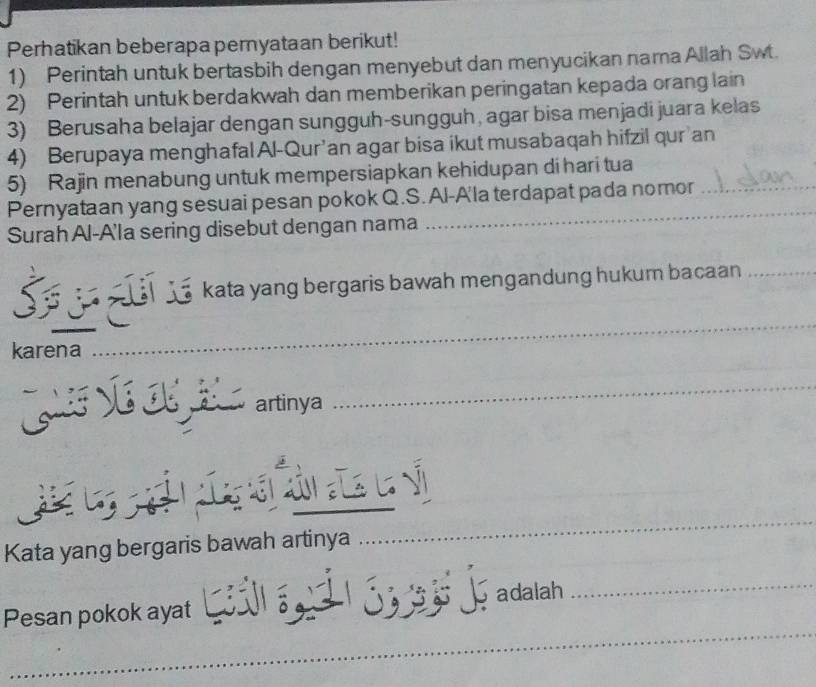 Perhatikan beberapa pernyataan berikut!
1) Perintah untuk bertasbih dengan menyebut dan menyucikan nama Allah Swt.
2) Perintah untuk berdakwah dan memberikan peringatan kepada orang lain
3) Berusaha belajar dengan sungguh-sungguh, agar bisa menjadi juara kelas
4) Berupaya menghafal Al-Qur'an agar bisa ikut musabaqah hifzil qur'an
5) Rajin menabung untuk mempersiapkan kehidupan di hari tua
Pernyataan yang sesuai pesan pokok Q.S. Al-A'la terdapat pada nomor 1 dan
Surah Al-A'la sering disebut dengan nama
قَدْ أَفْلَحَ مَنْ تَزَكّٰى kata yang bergaris bawah mengandung hukum bacaan
karena
سَنُقْرِئُكَ فَلَا تَنْسٰٓى artinya
اِلَّا مَا شَاۤءَ اللّٰهُ ۗاِنَّهٗ يَعْلَمُ الْجَهْرَ وَمَا يَخْفٰى
Kata yang bergaris bawah artinya
Pesan pokok ayat بَلْ تُؤْثِرُوْنَ الْحَيٰوةَ الدُّنْيَا adalah